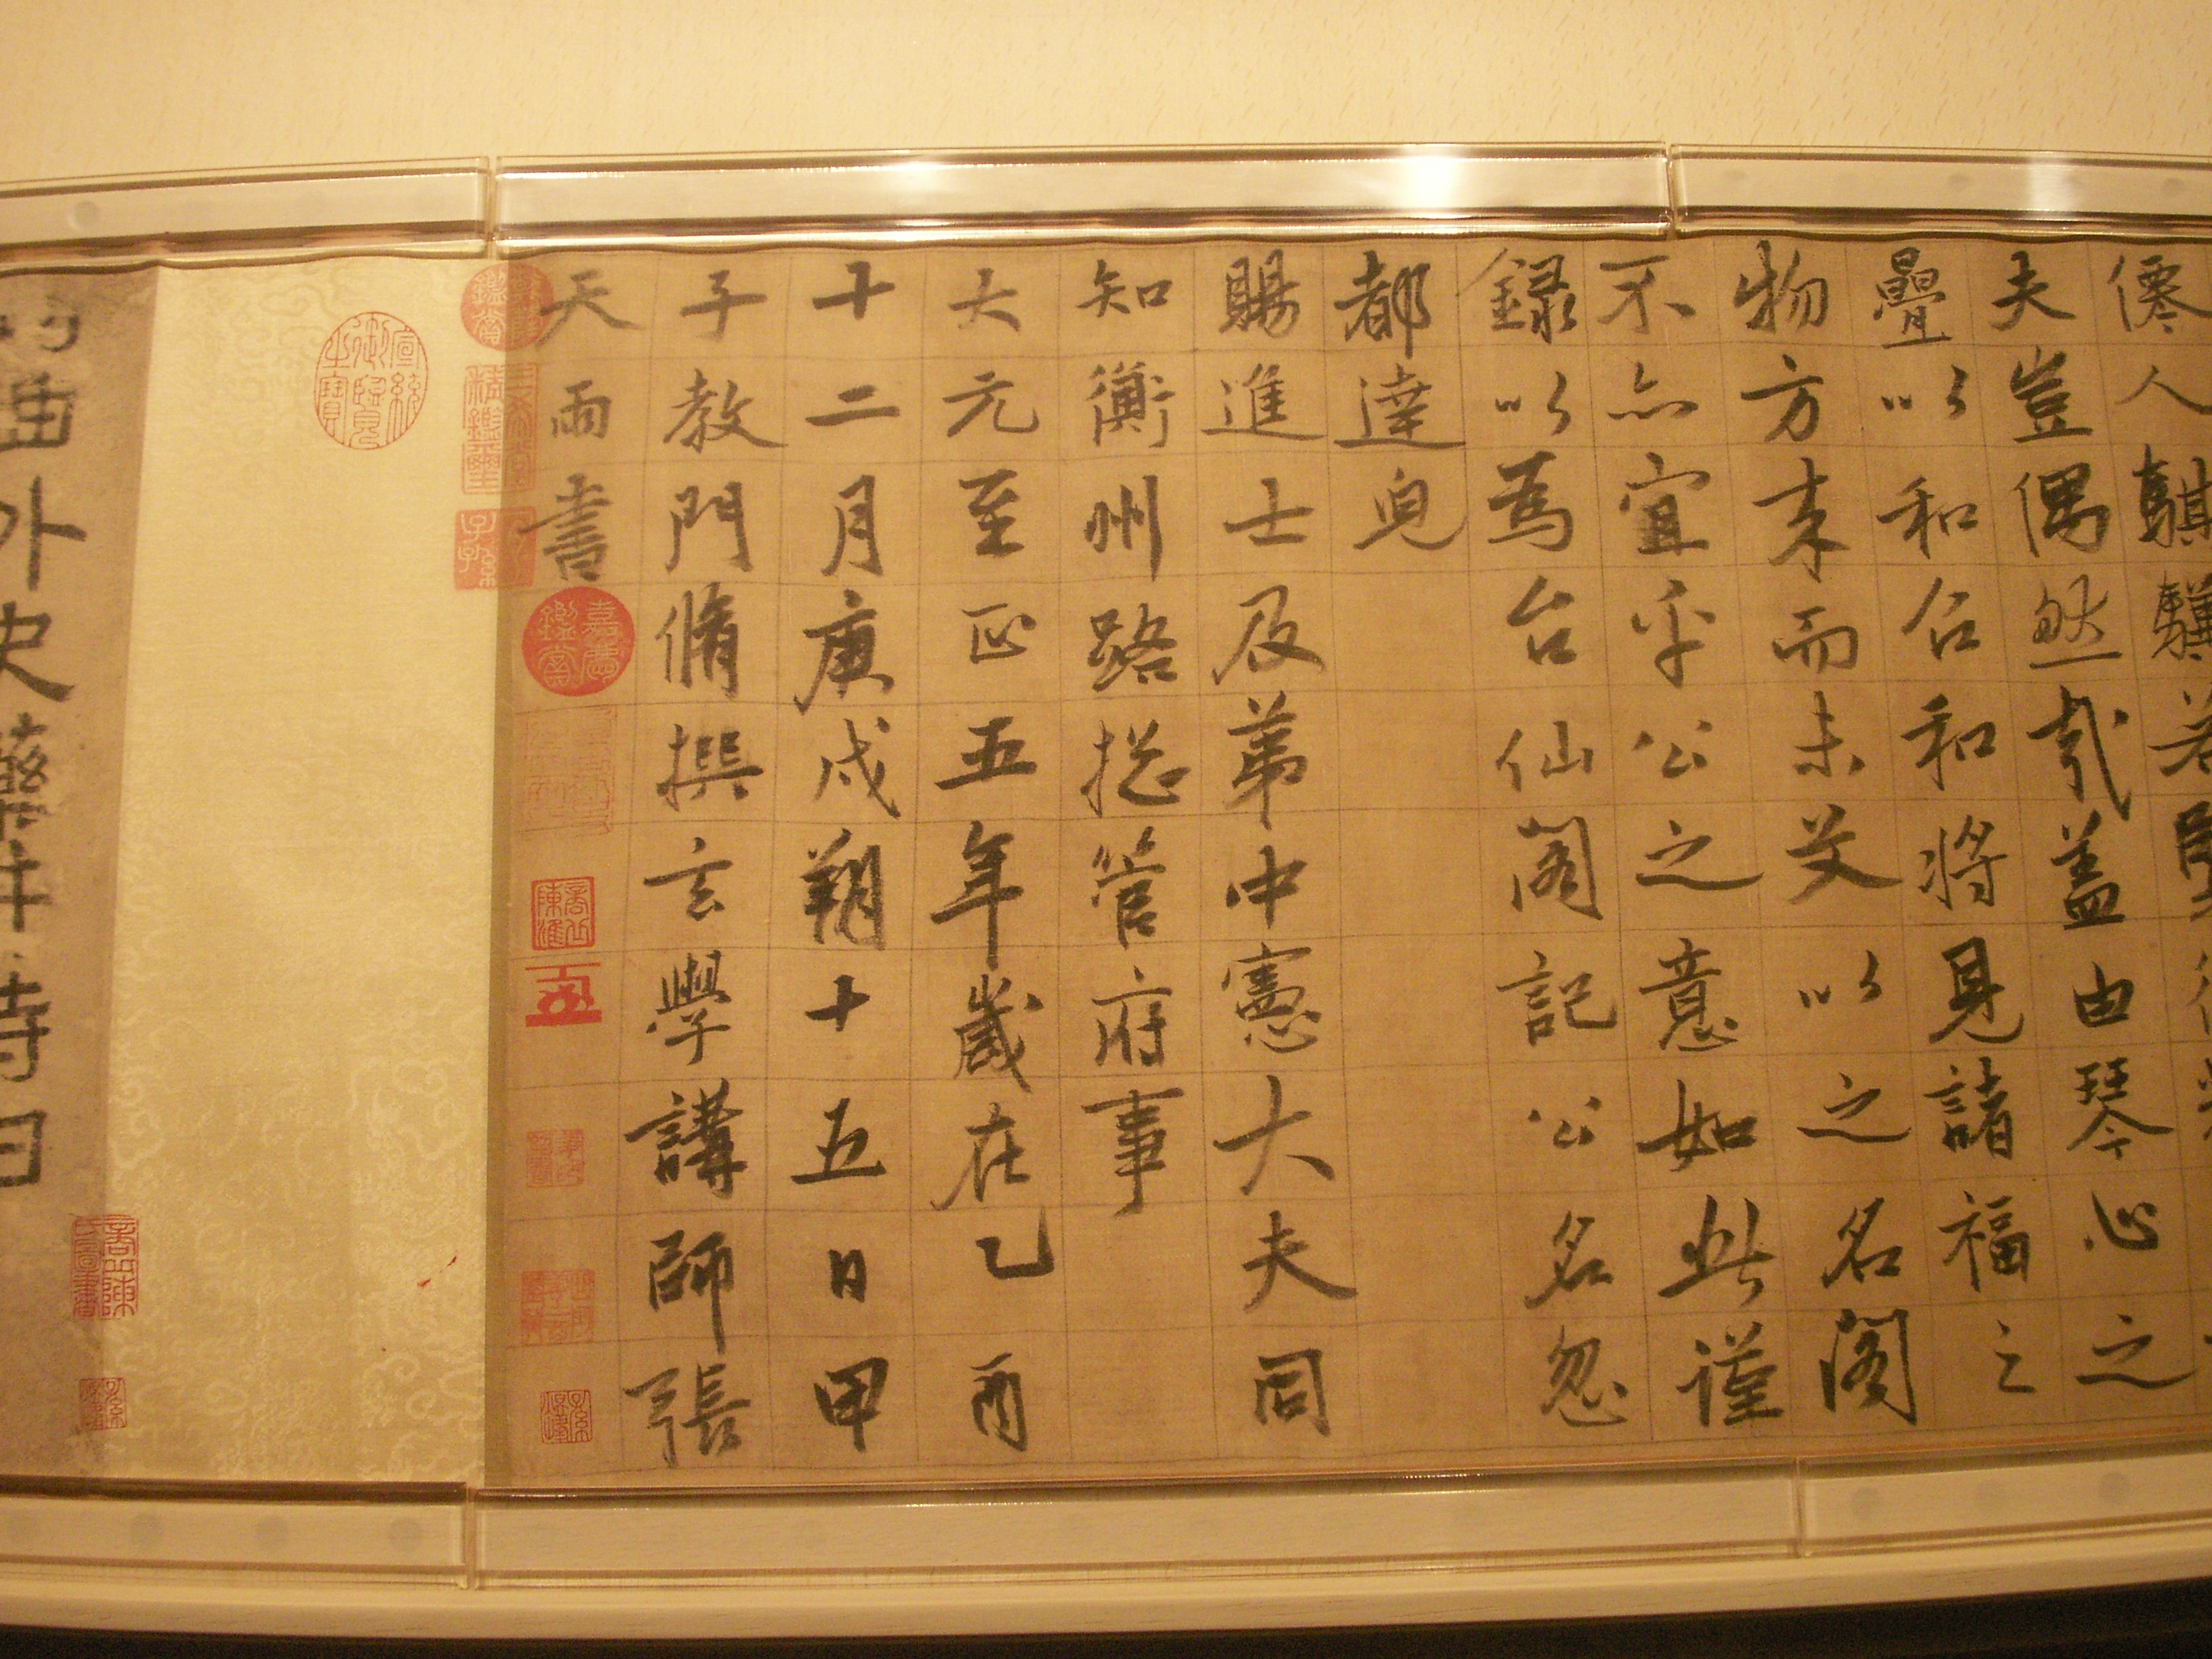 僊人騏驥若
夫豈偶然哉蓋由琴心之
疊以和合和將見諸福之
物方来而未艾以之名閣
不亦宜乎公之意如此謹
録以為台仙閣記公名忽
都達皃
賜進士及苐中憲大夫同
知衡州路捴管府事
大元至正五年歲在乙酉
十二月庚戌朔十五日甲
子教門脩撰玄學講師張
天雨書
嘉慶鑑賞
宣統御覽之寶
外史
詩曰